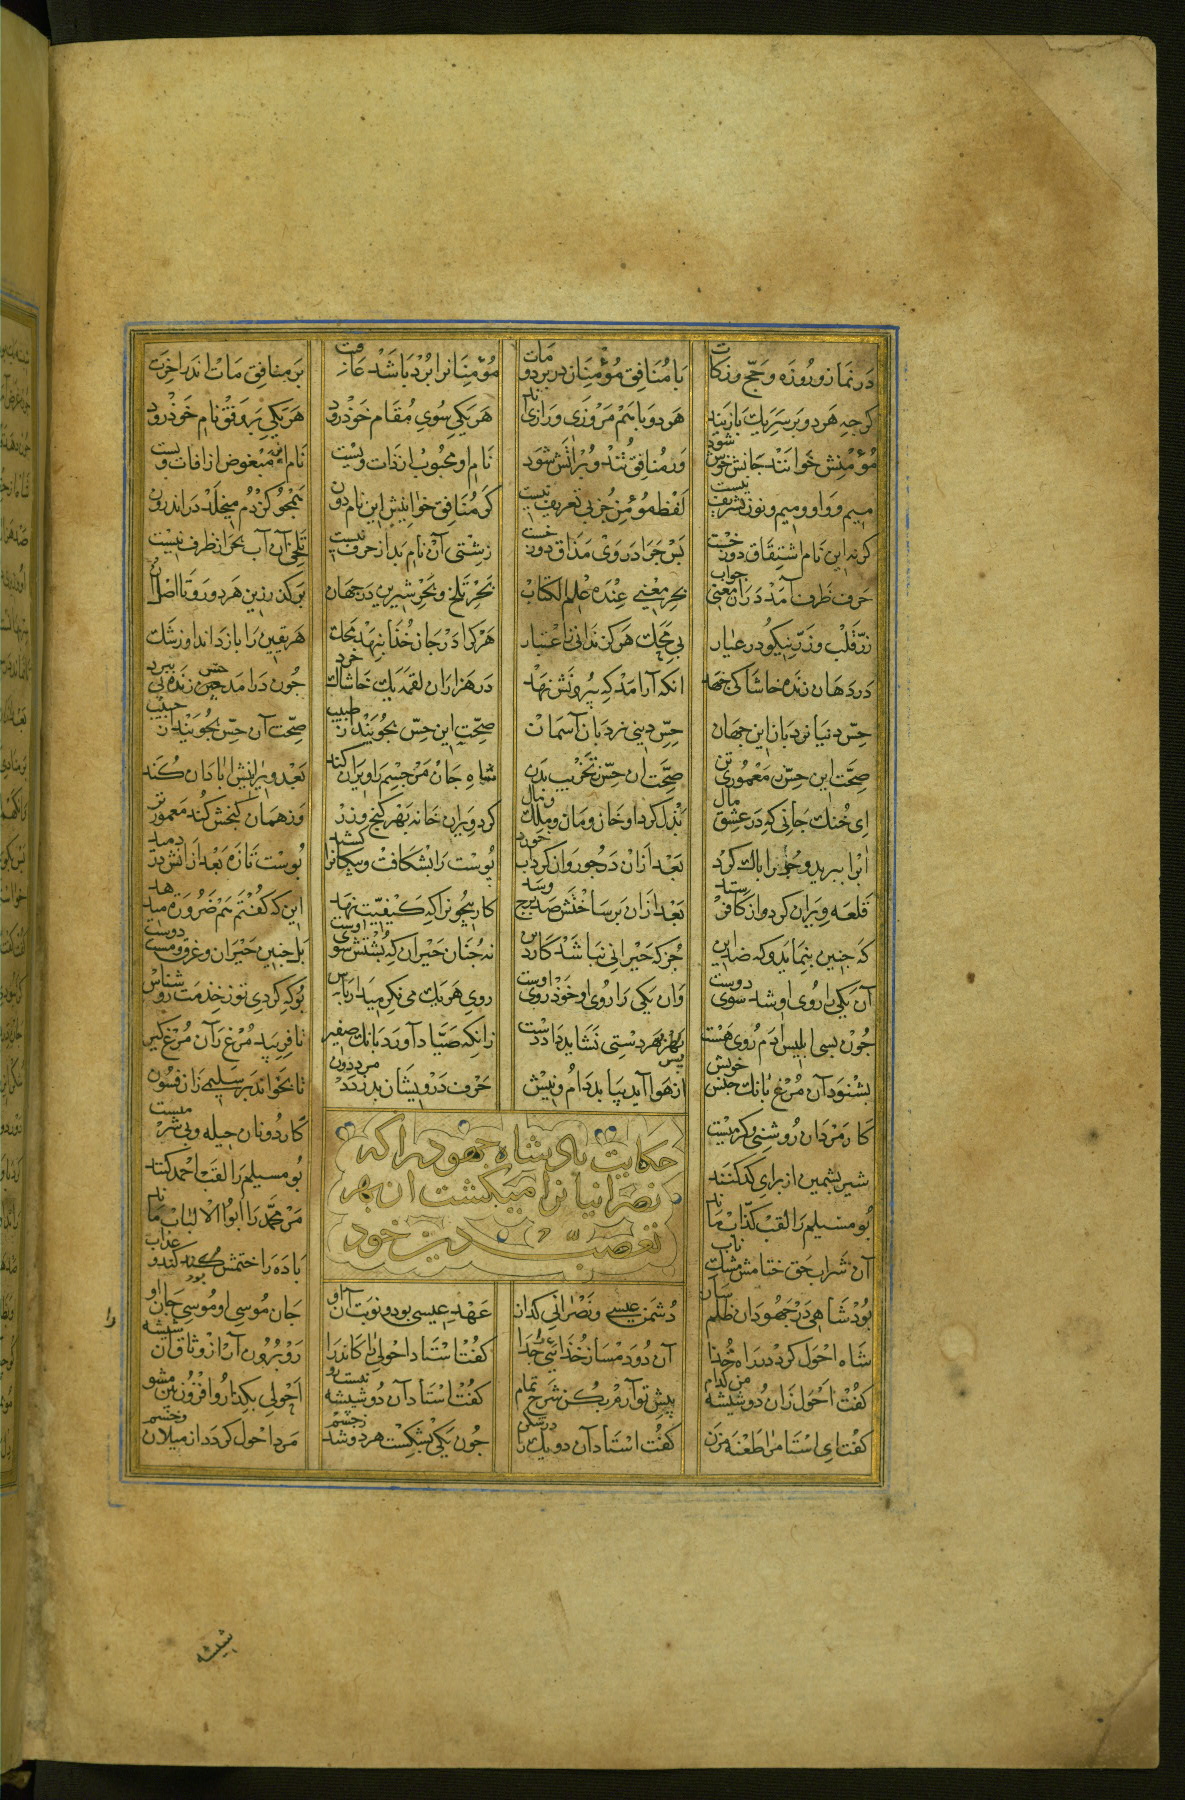 در نماز و روزه و حج و زکات با منافق مؤمنان در برد و مات مؤمنانرا برد باشد عاقبت بر منافق مات اندر اخرت
کرچه هر دو بر سر یك بازیند هر دو با هم مروزی و رازیند هر یکی سوی مقام خود رود هر یکی بر وفق نام خود رود
مؤمنش خوانند جانش خوش شود ور منافق تند و پر آتش شود نام او محبوب از ذات ویست نام این مبغوض از افات ویست
میم و واو و میم و نون تشریف نیست لفظ مؤمن جز پی تعریف نیست کر منافق خوانیش این نام دون همجو کژدم میخلد در اندرون
کرنه این نام اشتقاق دوزخست پس جرا در وی مذاق دوزخست زشتی آن نام بد از حرف نیست تلخی آن آب بحر از ظرف نیست
حرف ظرف آمد در ان معنی جو اب بحر معنی عنده علم الکتاب بحر تلخ و بحر شیرین در جهان
زر قلب و زر نیکو در عیار بی محك هرکز ندانی ز اعتبار هر کرا در جان خدا بنهد محك هر یقین را باز داند او ز شك
در دهان زنده خاشاکی جهد انکه آرامد که بیرونش نهد در هزاران لقمه یك خاشاك خرد جون در امد حس زنده پی ببرد
حس دنیا نردبان این جهان حس دینی نردبان آسمان صحت این حس بجویید از طبیب صحت آن حس بجویید از حبیب
صحت این حس ز معموری تن صحت ان حس ز تخریب بدن شاه جان مر جسم را ویران کند بعد ویرانیش ابادان کند
ای خنك جانی که در عشق مال بذل کرد او خان و مان و ملك و مال کرد ویران خانه بهر کنج و زر وز همان کنجش کند معمورتر
آب را ببرید و جو را پاك کرد بعد ازان در جو روان کرد اب خورد پوست را بشکافت و پیکانرا کشید پوست تازه بعد ازانش بر دمید
قلعه ویران کرد و از کافر ستد بعد ازان بر ساختش صد برج و سد کار بیچونرا که کیفیت نهد این که کفتم هم ضرورت میدهد
که جنین بنماید و که ضد این جز که حیرانی نباشد کار دین نه جنان حیران که پشتش سوی اوست بل جنین حیران و غرق و مست دوست
آن یکی را روی او شد سوی دوست وان یکی را روی او خود روی اوست روی هر یك می نکر میدار پاس بوك کردی تو ز خدمت رو شناس
جون بسی ابلیس ادم روی هست پس بهر دستی نشاید داد دست زانکه صیاد آورد بانك صفیر تا فریبد مرغ را آن مرغ کیر
بشنود آن مرغ بانك جنس خویش از هوا آید بیابد دام و نیش حرف درویشان بدزدد مرد دون تا بخواند بر سلیمی زان فسون
کار مردان روشنی و کرمیست کار دونان حیله و بی شرمیست
شیر پشمین از برای کد کنند بو مسیلم را لقب احمد کنند
بو مسیلم را لقب کذاب ماند مر محمد را اولوا الالباب ماند
آن شراب حق ختامش مشك ناب باده را ختمش بود کند و عذاب
حکایت پادشاه جهود را که
نصرانیانرا میکشت از بهر
تعصب دین خود
بود شاهی در جهودان ظلم ساز دشمن عیسی و نصرانی کداز عهد عیسی بود و نوبت آن او جان موسی او و موسی جان او
شاه احول کرد در راه خدا آن دو دمساز خدایی را جدا کفت استاد احولی را کاندر ا رو برون آر از وثاق آن شیشه را
کفت احول زان دو شیشه من کدام پیش تو آرم بکن شرح تمام کفت استاد آن دو شیشه نیست رو احولی بکذار و افزون بین مشو
کفت ای استا مرا طعنه مزن کفت استاد آن دو یك را در شکن جون یکی بشکست هر دو شد ز چشم مرد احول کردد از میلان و خشم
شیشه